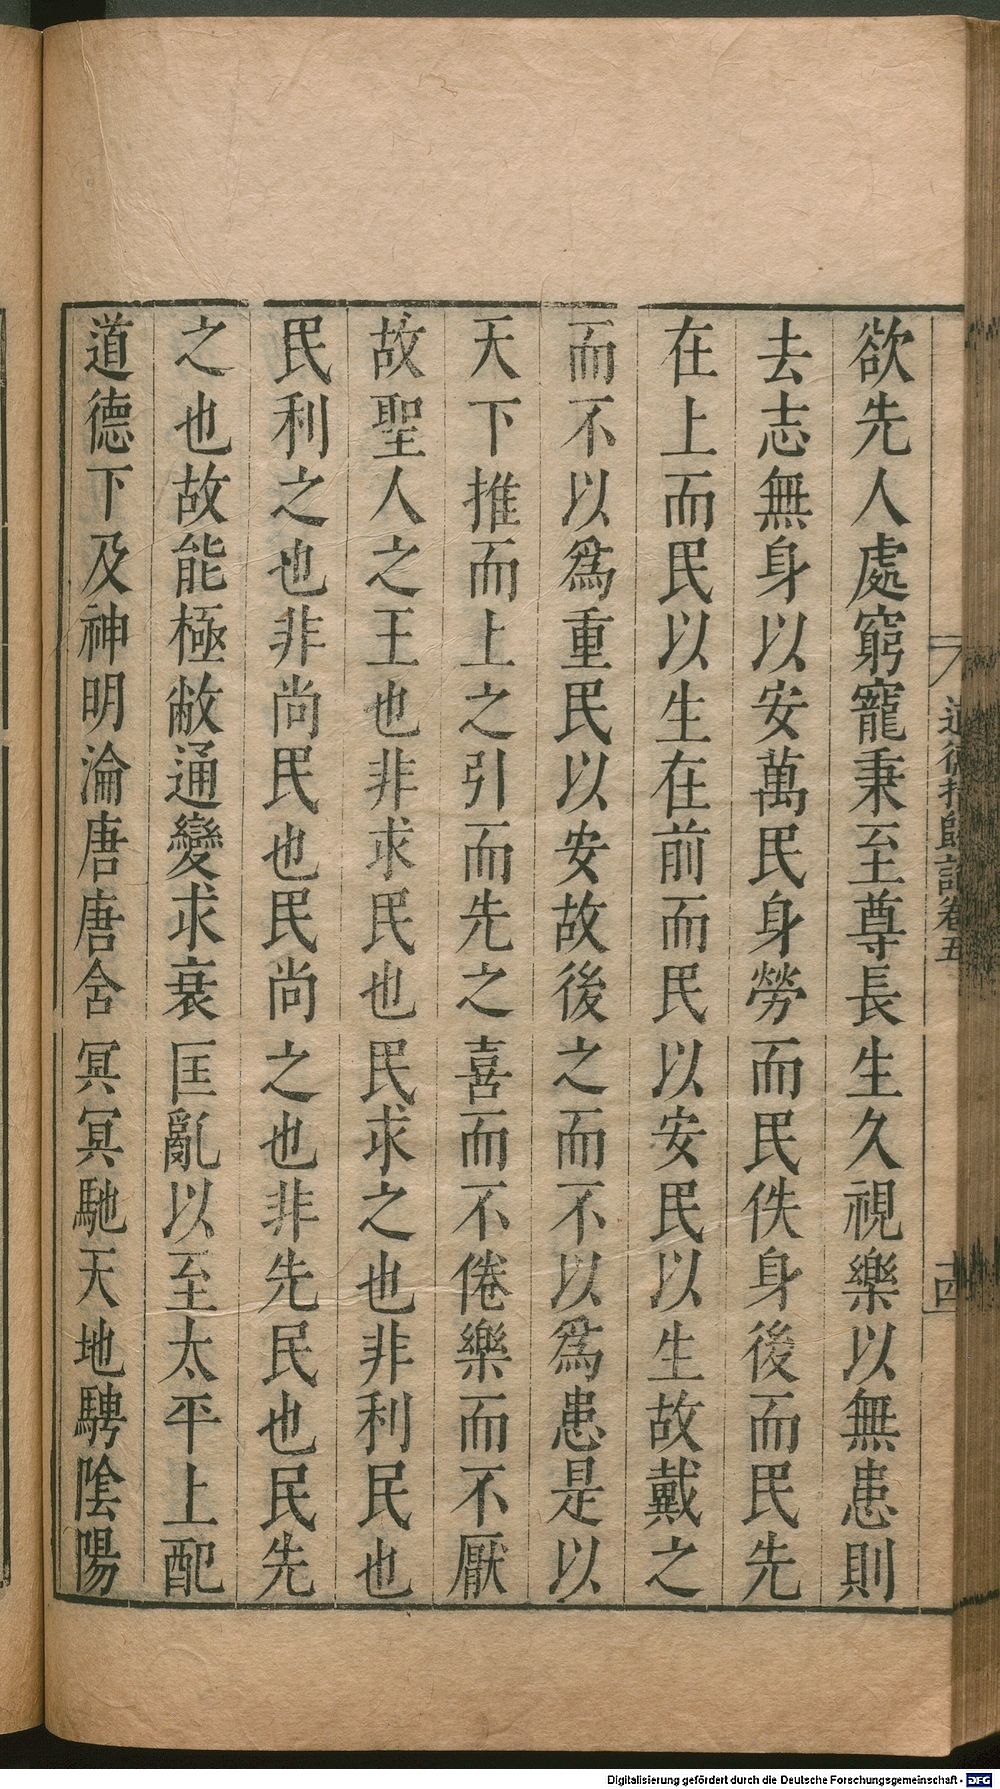 欲先人處窮寵秉至尊長生久視樂以無患則
去志無身以安萬民身勞而民佚身後而民先
在上而民以生在前而民以安民以生故戴之
而不以為重民以安故後之而不以為患是以
天下推而上之引而先之喜而不倦樂而不厭
故聖人之王也非求民也民求之也非利民也
民利之也非尚民也民尚之也非先民也民先
之也故能極敝通變求衰匡亂以至太平上配
道德下及神明淪唐唐舍冥冥馳天地騁陰陽
道德指歸論卷五
Digitalisierung gefördert durch die Deutsche Forschungsgemeinschaft - DFG